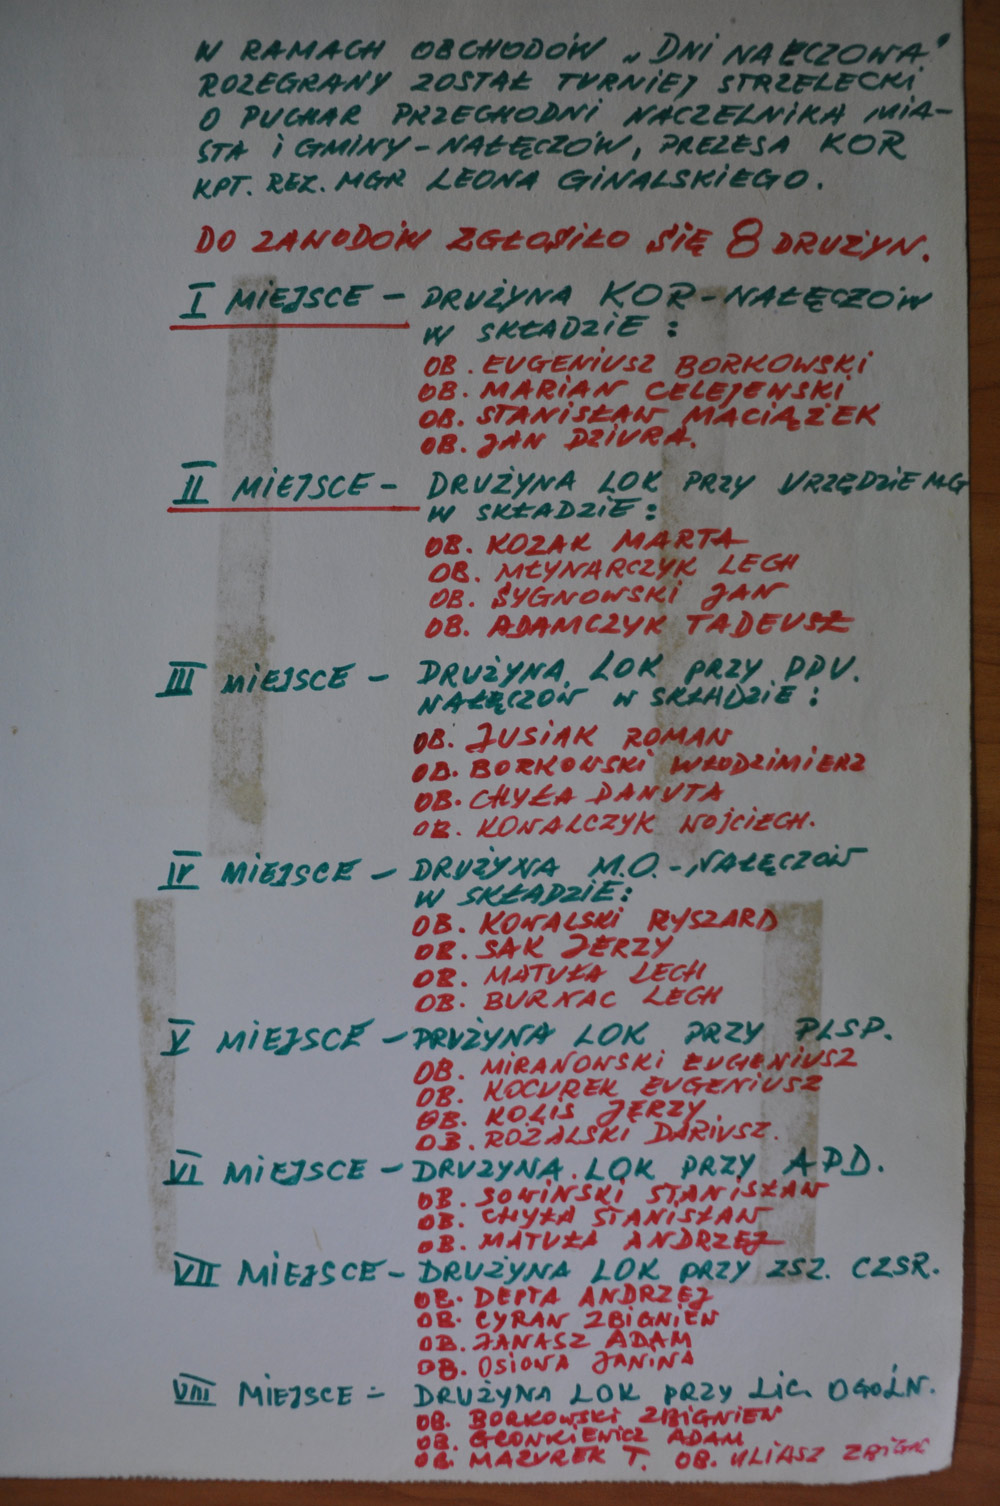 W RAMACH OBCHODÓW „DNI NAŁĘCZOWA”
ROZEGRANY ZOSTAŁ TURNIEJ STRZELECKI
O PUCHAR PRZECHODNI NACZELNIKA MIA-
STA i GMINY-NAŁĘCZÓW, PREZESA KOR
KPT. REZ. MGR LEONA GINALSKIEGO.
DO ZAWODÓW ZGŁOSIŁO SIĘ 8 DRUŻYN.
I MIEJSCE - DRUŻYNA KOR-NAŁĘCZÓW
W SKŁADZIE:
OB. EUGENIUSZ BORKOWSKI
OB. MARIAN CELEJEWSKI
OB. STANISŁAW MACIĄŻEK
OB. JAN DZIURA.
II MIEJSCE - DRUŻYNA LOK PRZY URZĘDZIE MG
W SKŁADZIE:
OB. KOZAK MARTA
OB. MŁYNARCZYK LECH
OB. SYGNOWSKI JAN
OB. ADAMCZYK TADEUSZ
III MIEJSCE - DRUŻYNA LOK PRZY DDU.
NAŁĘCZÓW W SKŁADZIE:
OB. JUSIAK ROMAN
OB. BORKOWSKI WŁODZIMIERZ
OB. CHYŁA DANUTA
OB. KOWALCZYK WOJCIECH.
IV MIEJSCE - DRUŻYNA M.O.-NAŁĘCZÓW
W SKŁADZIE:
OB. KOWALSKI RYSZARD
OB. SAK JERZY
OB. MATUŁA LECH
OB. BURNAC LECH
V MIEJSCE - DRUŻYNA LOK PRZY PLSP.
OB. MIRANOWSKI EUGENIUSZ
OB. KOCUREK EUGENIUSZ
OB. KOLIS JERZY
OB. ROŻALSKI DARIUSZ.
VI MIEJSCE - DRUŻYNA LOK PRZY APD.
OB. SOWIŃSKI STANISŁAW
OB. CHYŁA STANISŁAW
OB. MATUŁA ANDRZEJ
VII MIEJSCE - DRUŻYNA LOK PRZY ZSZ. CZSR.
OB. DEPTA ANDRZEJ
OB. CYRAN ZBIGNIEW
OB. JANASZ ADAM
OB. OSIOWA JANINA
VIII MIEJSCE - DRUŻYNA LOK PRZY LIC. OGÓLN.
OB. BORKOWSKI ZBIGNIEW
OB. GRONKIEWICZ ADAM
OB. MAZUREK T. OB. ULIASZ